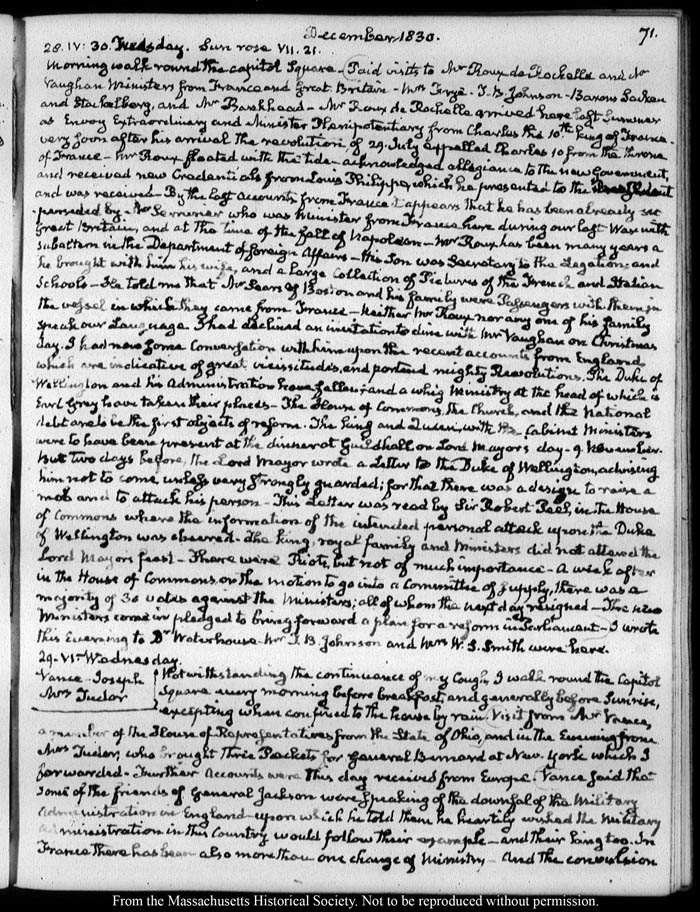 December 1830.
71.
28. IV: 30. Tuesday. Sun rose VII. 21.
Morning walk round the Capitol Square. Paid visits to Mr Roux de Rochelle and Mr
Vaughan Ministers from France and Great Britain - Mrs Frye. T. B. Johnson - Barons Sacken
and Stackelberg, and Mr Bankhead - Mr Roux de Rochelle arrived here last Summer
as Envoy Extraordinary and Minister Plenipotentiary from Charles the 10th King of France.
very soon after his arrival the revolution, of 29. July expelled Charles 10 from the throne
of France - Mr Roux floated with the tide - acknowledged allegiance to the new Government,
and received new Credentials from Louis Philippe, which he presented to the President
and was received - By the last Accounts from France it appears that he has been already su-
perseded by Mr Serrurier who was Minister from France here during our last War with
Great Britain, and at the time of the fall of Napoleon - Mr Roux has been many years a
subaltern in the Department of foreign Affairs - His Son was Secretary to the Legation and
he brought with him his wife, and a large Collection of Pictures of the French and Italian
Schools - He told me that Mr Sears of Boston and his family were Passengers with them in
the vessel in which they came from France - Neither Mr Roux nor any one of his family
speak our Language. I had declined an invitation to dine with Mr Vaughan on Christmas
day. I had now some Conversation with him upon the recent accounts from England,
which are indicative of great vicissitudes, and portend mighty Revolutions. The Duke of
Wellington and his Administration have fallen; and a whig Ministry at the head of which is
Earl Grey have taken their places - The House of Commons, the Church, and the National
debt are to be the first objects of reform. The King and Queen, with the Cabinet Ministers
were to have been present at the dinner at Guildhall on Lord Mayor's day - 9. November.
But two days before, the Lord Mayor wrote a Letter to the Duke of Wellington, advising
him not to come, unless very strongly guarded; for that there was a design to raise a
mob and to attack his person - This Letter was read by Sir Robert Peel, in the House
of Commons where the information of the intended personal attack upon the Duke
of Wellington was The King, royal family and Ministers did not attend the
Lord Mayor's feast - There were Riots, but not of much importance - A week after
in the House of Commons, on the motion to go into a Committee of supply, there was a
majority of 30 votes against the Ministers; all of whom the next day resigned - The new
Ministers come in pledged to bring forward a plan for a reform in Parliament - I wrote
this Evening to Dr Waterhouse. Mr T. B Johnson and Mrs W. S. Smith were here.
29. VI. Wednesday.
Vance - Joseph
Mrs Tudor
Notwithstanding the continuance of my Cough, I walk round the Capitol
Square every morning before breakfast, and generally before Sunrise,
excepting when confined to the house by rain. Visit from Mr Vance,
a member of the House of Representatives from the State of Ohio, and in the Evening from
Mrs Tudor, who brought three Packets for General Bernard at New-York which I
forwarded - Further Accounts were this day received from Europe. Vance said that
some of the friends of General Jackson were speaking of the downfal of the Military
Administration in England - upon which he told them he heartily wished the Military
Administration in this Country would follow their example - and their King too. In
France there has been also more than one change of Ministry - And the convulsion
From the Massachusetts Historical Society. Not to be reproduced without permission.